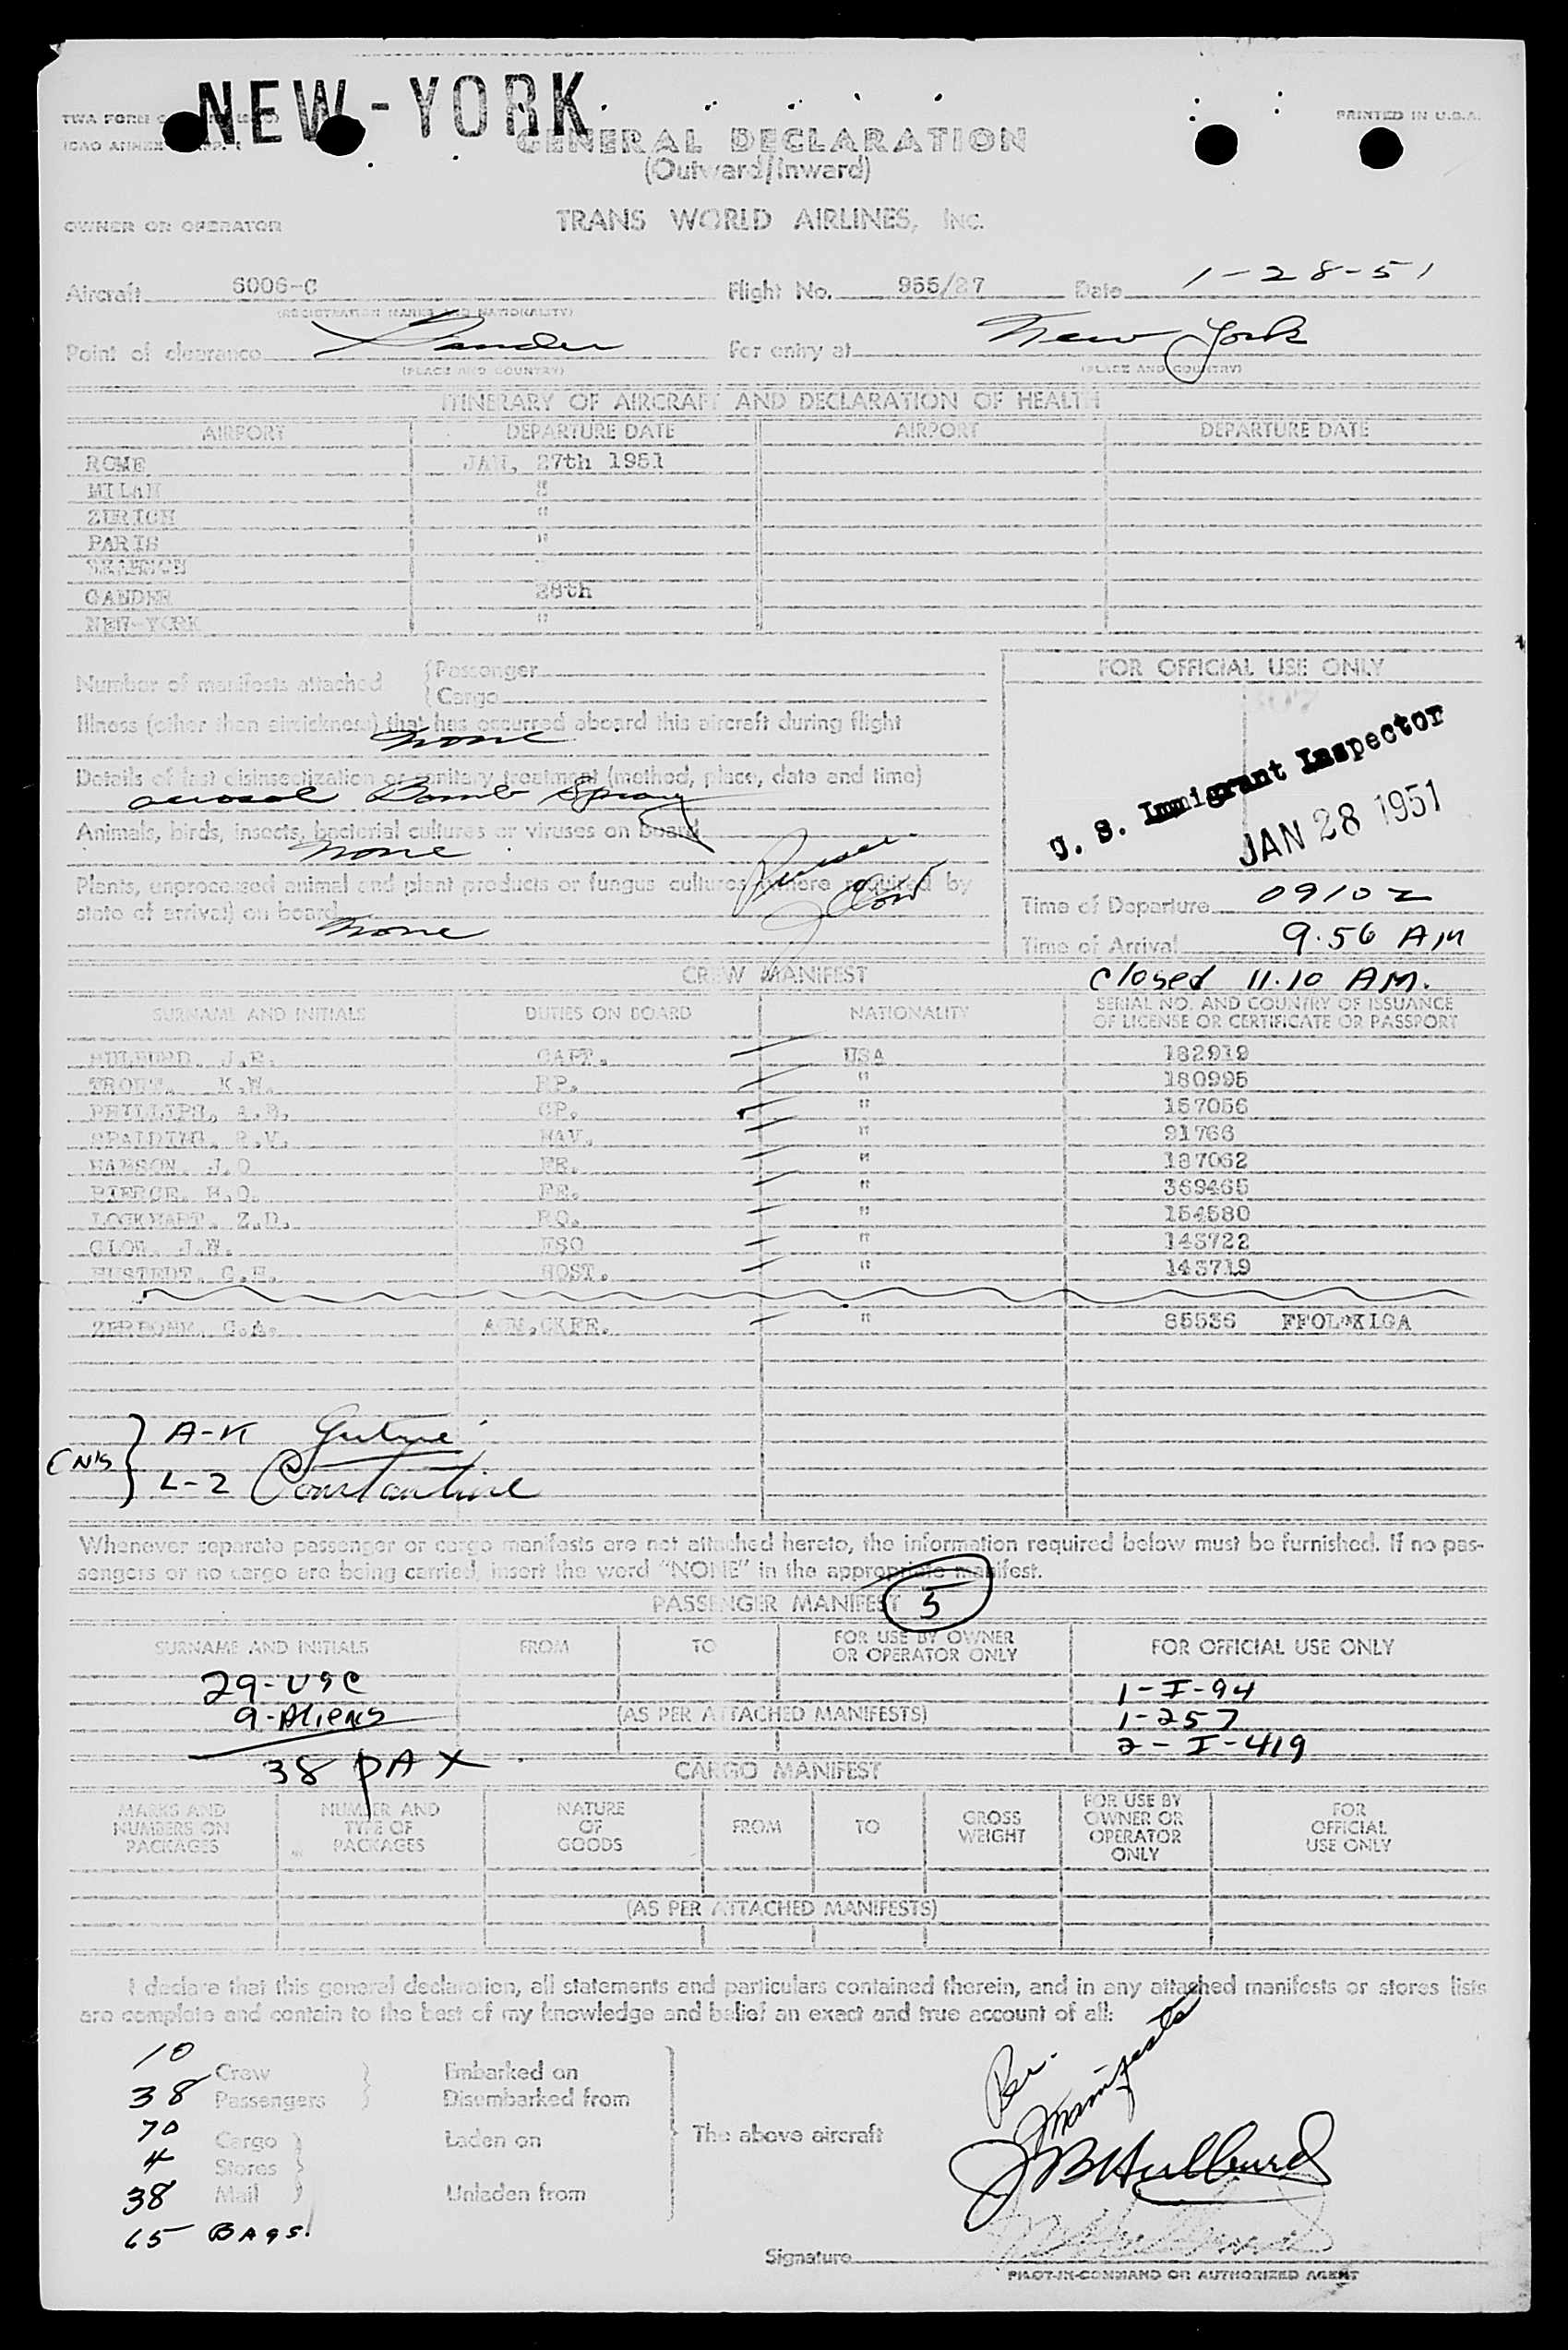 NEW-YORK
TWA FORM
PRINTED IN U.S.A.
ICAO ANNEX
GENERAL DECLARATION
(Outward/Inward)
OWNER OR OPERATOR
TRANS WORLD AIRLINES, INC.
Aircraft 6006-C Flight No. 955/27 Date 1-28-51
(REGISTRATION MARKS AND NATIONALITY)
Point of clearance Gander For entry at New York
(PLACE AND COUNTRY) (PLACE AND COUNTRY)
ITINERARY OF AIRCRAFT AND DECLARATION OF HEALTH
AIRPORT DEPARTURE DATE AIRPORT DEPARTURE DATE
ROME JAN, 27th 1951
MILAN "
ZURICH "
PARIS "
SHANNON
GANDER 28th
NEW-YORK "
Number of manifests attached {Passenger
{Cargo
FOR OFFICIAL USE ONLY
Illness (other than airsickness) that has occurred aboard this aircraft during flight
None
Details of last disinsectization or sanitary treatment (method, place, date and time)
aerosol Bomb Spray
U. S. Immigrant Inspector
JAN 28 1951
Animals, birds, insects, bacterial cultures or viruses on board
None
Purser
J Clow
Plants, unprocessed animal and plant products or fungus cultures (where required by
state of arrival) on board
None
Time of Departure 0910Z
Time of Arrival 9:56 AM
CREW MANIFEST
Closed 11.10 AM.
SURNAME AND INITIALS DUTIES ON BOARD NATIONALITY SERIAL NO. AND COUNTRY OF ISSUANCE
OF LICENSE OR CERTIFICATE OR PASSPORT
HULBURD. J.B. CAPT. USA 182919
TROUT. K.W. RP. " 180995
PHILLIPS, A.B. CP. " 157056
SPALDING. R.V. NAV. " 91766
HANSON. J.O FE. " 187062
PIERCE. H.O. FE. " 369465
LOCKHART. Z.D. RO. " 154580
CLOW. J.W. FSO " 143722
HUSTEDT. C.H. HOST. " 143719
C.A. " 85536
CN's } A-K Gutine
L-Z Constantine
Whenever separate passenger or cargo manifests are not attached hereto, the information required below must be furnished. If no pas-
sengers or no cargo are being carried, insert the word "NONE" in the appropriate manifest.
PASSENGER MANIFEST 5
SURNAME AND INITIALS FROM TO FOR USE BY OWNER
OR OPERATOR ONLY FOR OFFICIAL USE ONLY
29-USC 1-I-94
9-Aliens (AS PER ATTACHED MANIFESTS) 1-257
2-I-419
38 PAX
CARGO MANIFEST
MARKS AND
NUMBERS ON
PACKAGES NUMBER AND
TYPE OF
PACKAGES NATURE
OF
GOODS FROM TO GROSS
WEIGHT FOR USE BY
OWNER OR
OPERATOR
ONLY FOR
OFFICIAL
USE ONLY
(AS PER ATTACHED MANIFESTS)
I declare that this general declaration, all statements and particulars contained therein, and in any attached manifests or stores lists
are complete and contain to the best of my knowledge and belief an exact and true account of all:
10 Crew } Embarked on
38 Passengers Disembarked from
70 Cargo Laden on
4 Stores The above aircraft
38 Mail Unladen from
65 Bags.
Per.
Manifests
JB Hulburd
Signature
PILOT-IN-COMMAND OR AUTHORIZED AGENT